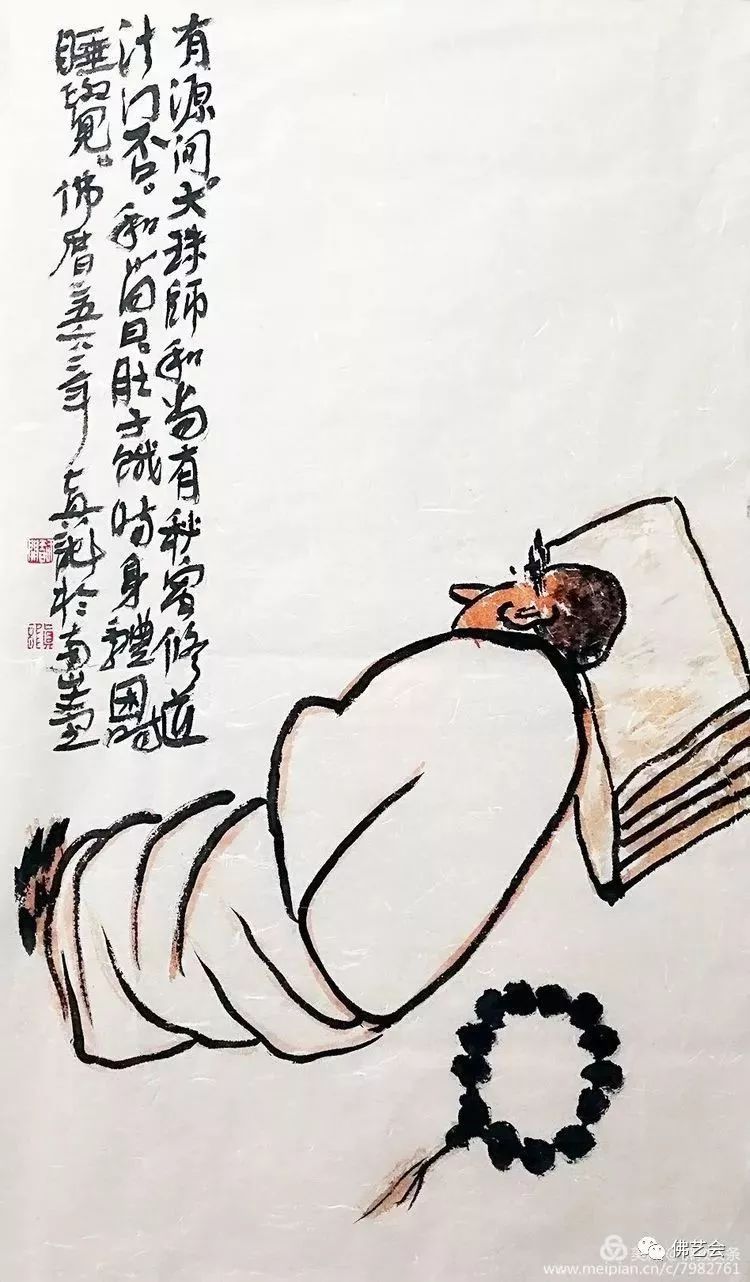 有源问。大珠師和尚有秘密修道
法门否。和尚曰肚子饿时身體困时
睡覺。佛曆二五六三年 真 於南
佛艺会
www.meipian.cn/c/7982761